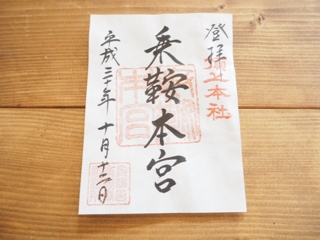 登拝
本社
乗鞍本宮
平成三十年 十月十二日